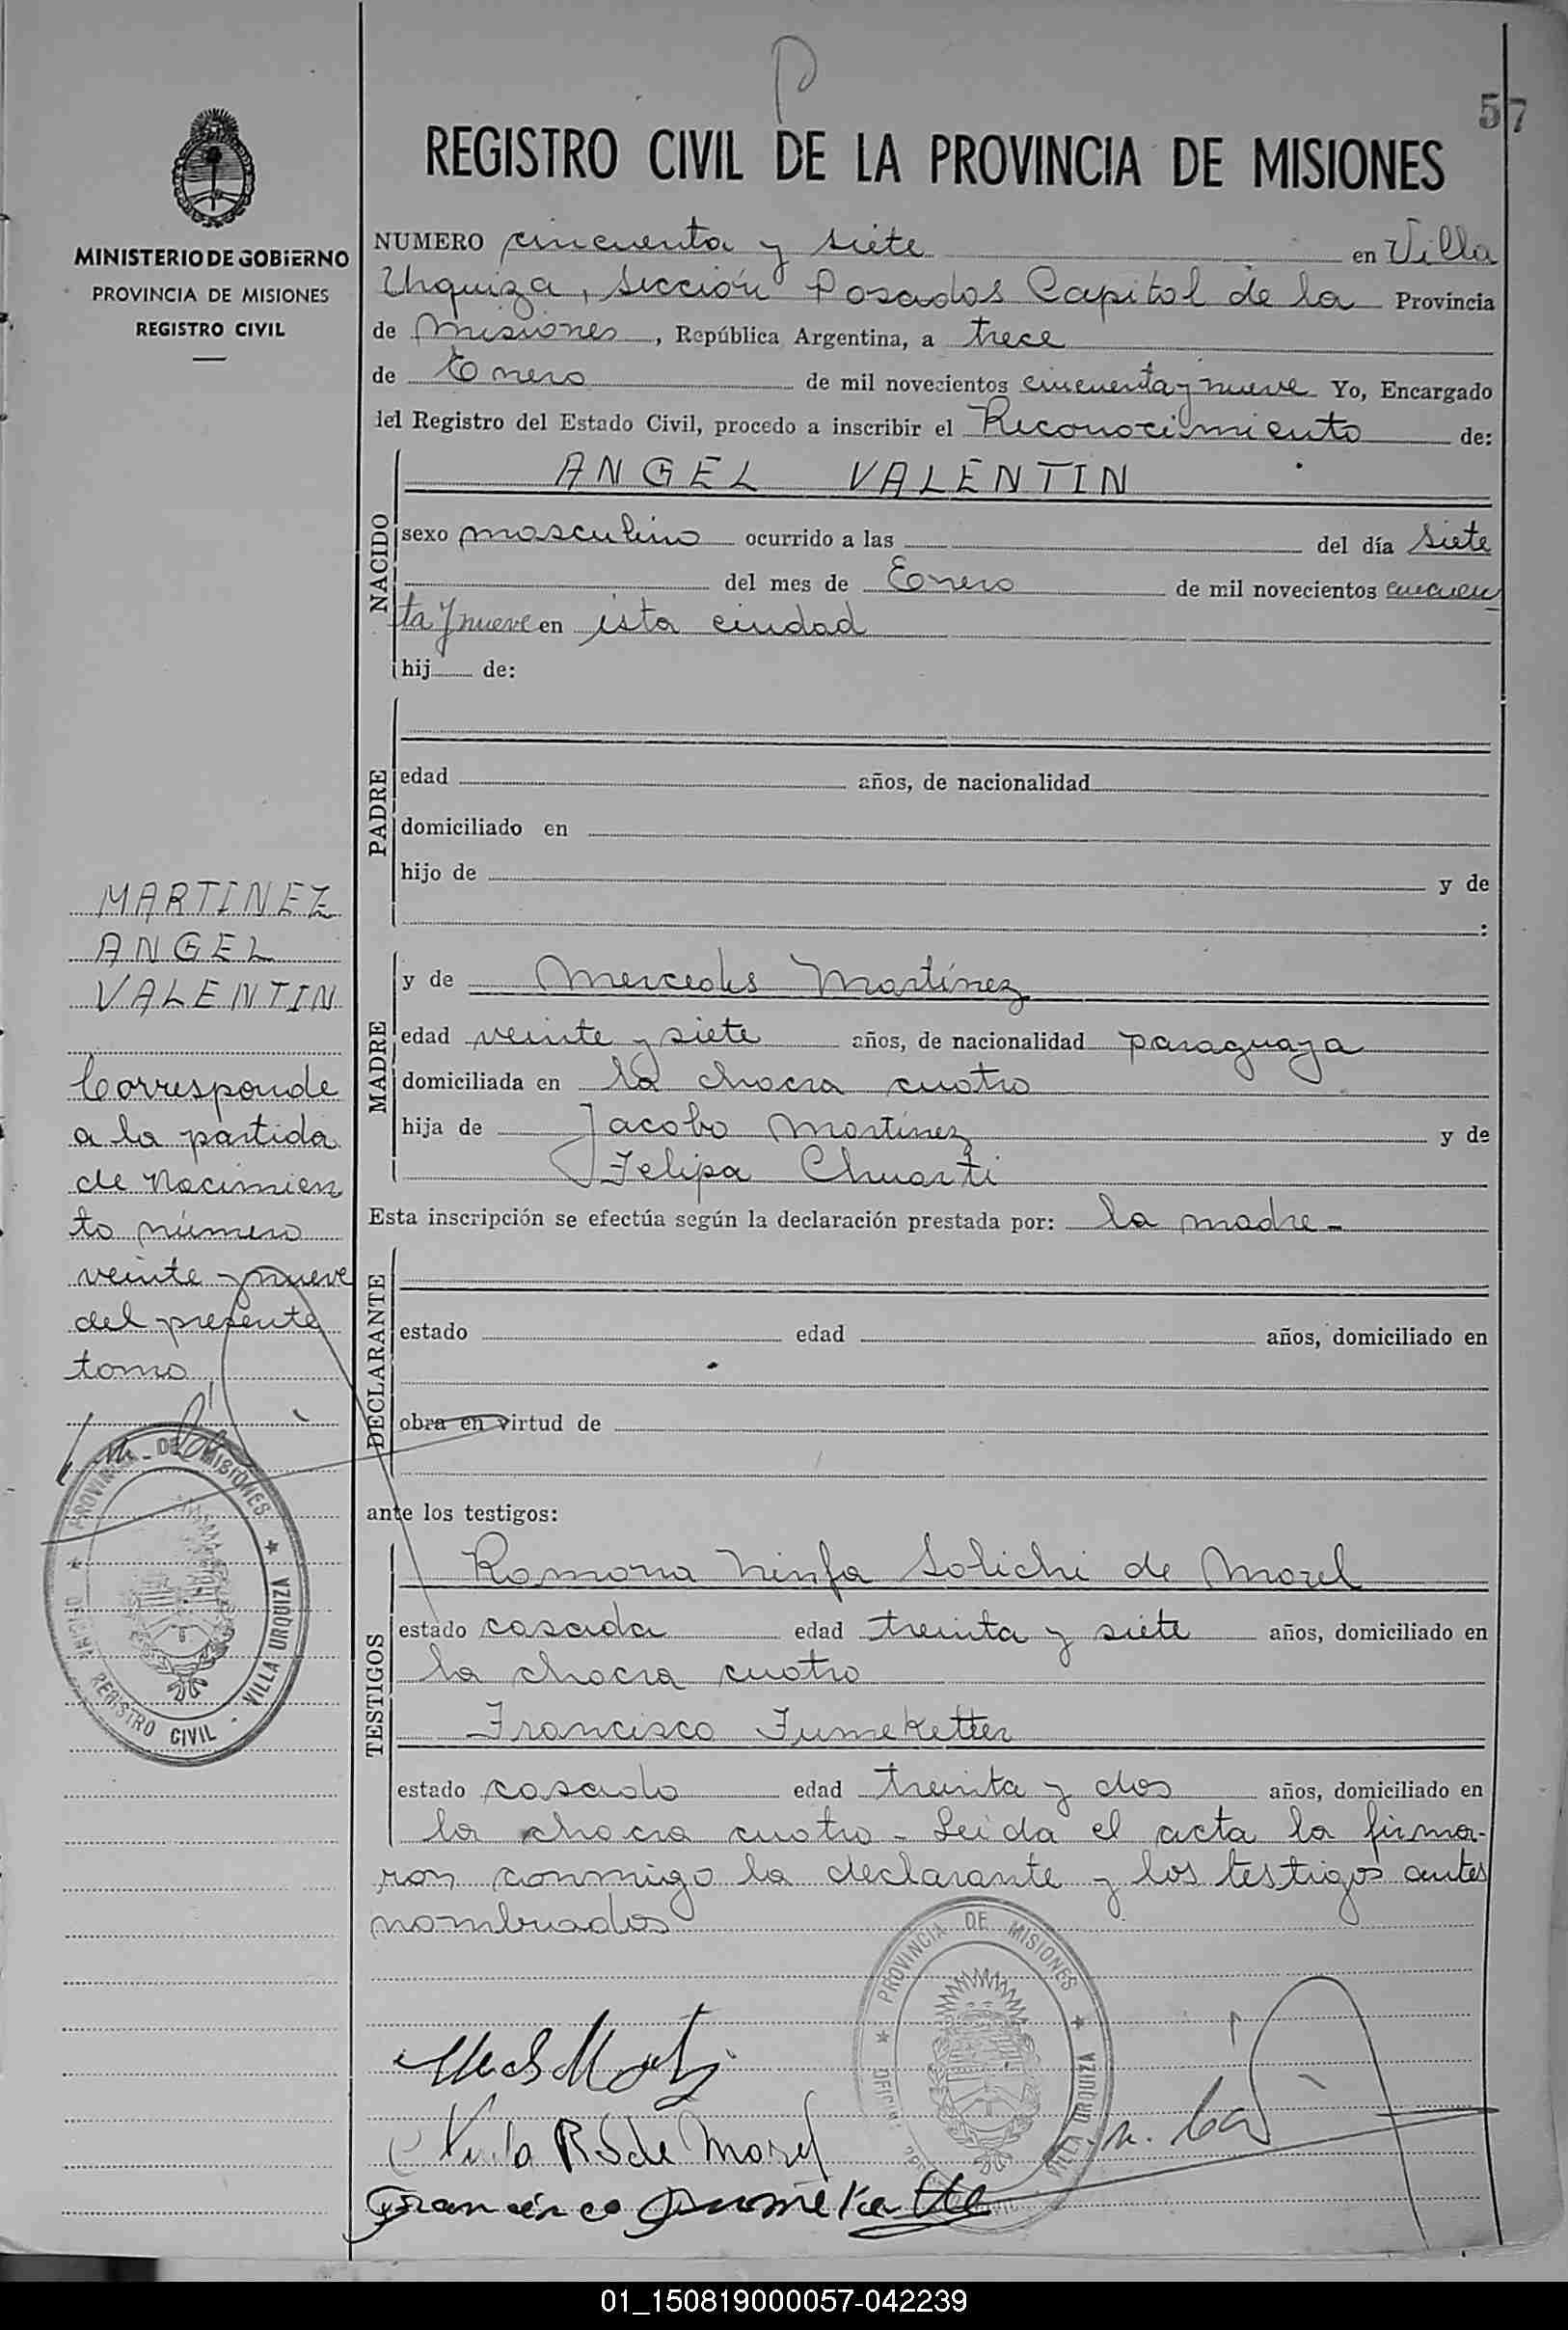 57
REGISTRO CIVIL DE LA PROVINCIA DE MISIONES
MINISTERIO DE GOBIERNO
PROVINCIA DE MISIONES
REGISTRO CIVIL
NUMERO cincuenta y siete en Villa
Urquiza, Sección Posadas Capital de la Provincia
de Misiones, República Argentina, a trece
de Enero de mil novecientos cincuenta y nueve Yo, Encargado
del Registro del Estado Civil, procedo a inscribir el Reconocimiento de:
ANGEL VALENTIN
NACIDO
sexo masculino ocurrido a las del día siete
del mes de Enero de mil novecientos cincuen
ta y nueve en esta ciudad
hij de:
PADRE
edad años, de nacionalidad
domiciliado en
hijo de y de
:
MADRE
y de Mercedes Martínez
edad veinte y siete años, de nacionalidad paraguaya
domiciliada en la chacra cuatro
hija de Jacobo Martinez y de
Felipa Chuarti
Esta inscripción se efectúa según la declaración prestada por: la madre-
DECLARANTE
estado edad años, domiciliado en
obra en virtud de
ante los testigos:
TESTIGOS
Ramona Ninfa Solichi de Morel
estado casada edad treinta y siete años, domiciliado en
la chacra cuatro
Francisco Fumeketter
estado casado edad treinta y dos años, domiciliado en
la chacra cuatro - Leida el acta la firma-
ron conmigo la declarante y los testigos antes
nombrados
MARTINEZ
ANGEL
VALENTIN
Corresponde
a la partida
de Nacimien
to número
veinte y nueve
del presente
tomo
PROVINCIA DE MISIONES
OFICINA REGISTRO CIVIL - VILLA URQUIZA
PROVINCIA DE MISIONES
VILLA URQUIZA
R S de Morel
Francisco
01_150819000057-042239